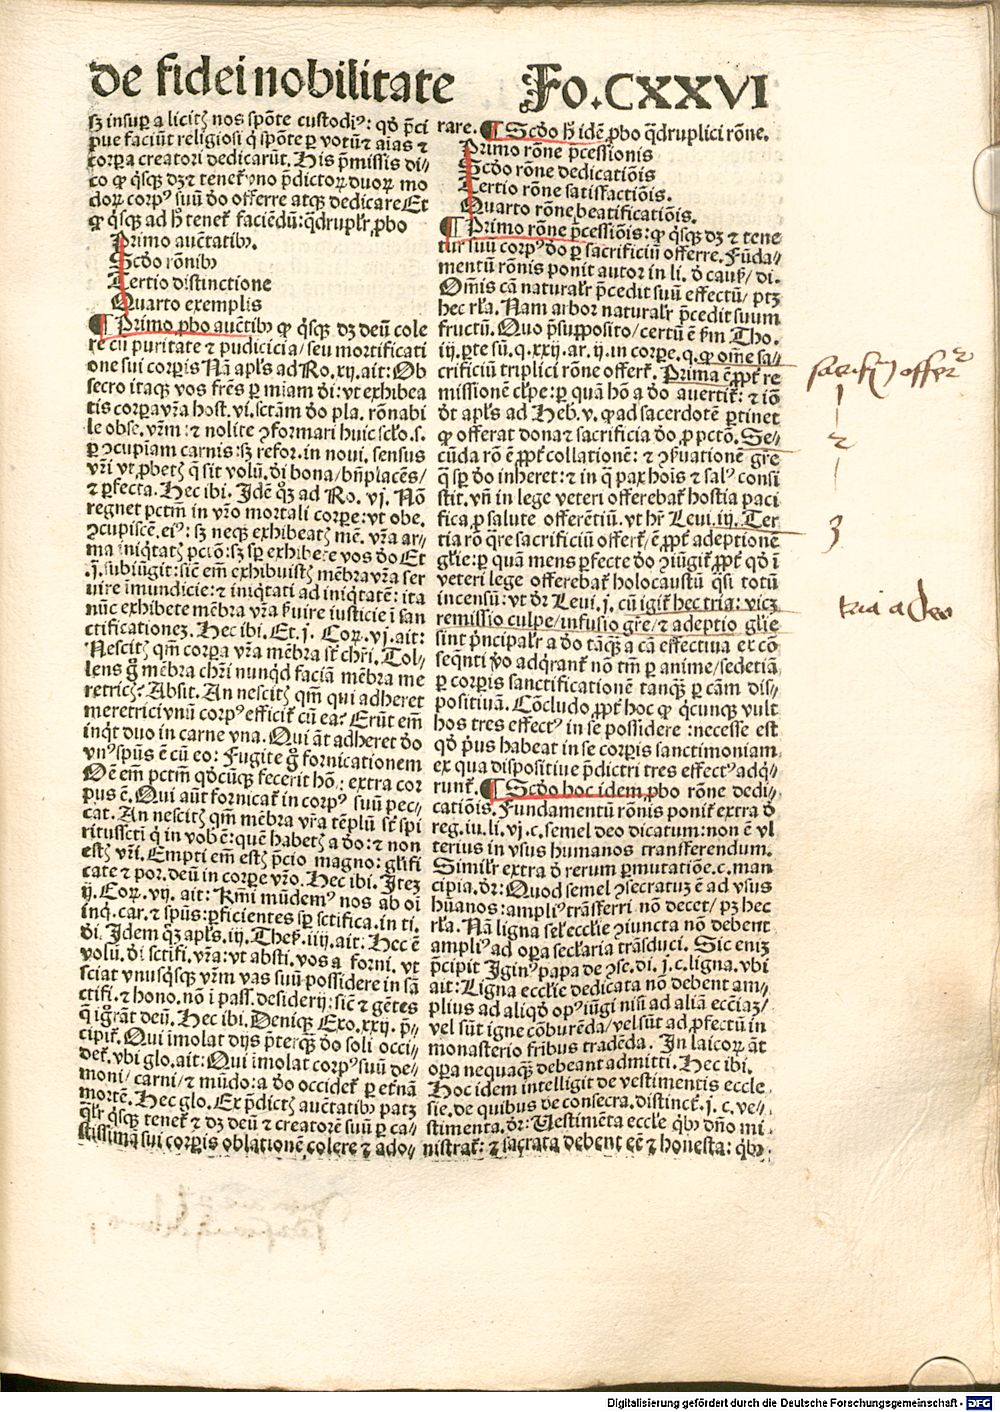 de fidei nobilitate Fo.CXXVI
sꝫ insuꝑ a licitꝭ nos spōte custodiꝰ: qđ p̄ci
pue faciūt religiosi q̇ spōte ꝑ votū ⁊ aīas ⁊
corpa creatori dedicarūt. His p̄missis di⸗
co ꝙ q̇sqꝫ dꝫ ⁊ teneť vno p̄dictoꝝ duoꝝ mo
doꝝ corpꝰ suū đo offerre atqꝫ dedicare Et
ꝙ q̇sqꝫ ad h̄ teneť faciēdū: qđruplr̄ ꝓbo
Primo auc̄tatibꝰ.
Scđo rōnibꝰ
Tertio distinctione
Quarto exemplis
¶ Primo ꝓbo auc̄tibꝰ ꝙ q̇sqꝫ dꝫ deū cole
re cū puritate ⁊ pudicicia/seu mortificati
one sui corpis Nā apls̄ ad Ro. xij. ait: Ob
secro itaqꝫ vos frēs ꝑ miam đi: vt exhibea
tis corpa vr̄a host. vi. sctām đo pla. rōnabi
le obse. vr̄m: ⁊ nolite ꝯformari huic sclo. s.
ꝑ ꝯcupiam carnis: sꝫ refor. in noui. sensus
vr̄i vt ꝓbetꝭ q̄ sit volū. đi bona/bn̄placēs/
⁊ ꝑfecta. Hec ibi. Idē qꝫ ad Ro. vj. Nō
regnet pctm̄ in vr̄o mortali corpe: vt obe.
ꝯcupiscē. eiꝰ: sꝫ neqꝫ exhibeatꝭ mē. vr̄a ar⸗
ma iniq̇tatꝭ pctō: sꝫ sꝑ exhibete vos đo Et
.j. subiūgit: sic̄ em̄ exhibuistꝭ mēbra vr̄a ser
uire īmundicie: ⁊ iniq̇tati ad iniq̇tatē: ita
nūc exhibete mēbra vr̄a ẜuire iusticie ī san
ctificationeꝫ. Hec ibi. Et. j. Coꝝ. vj. ait:
Nescitꝭ qm̄ corpa vr̄a mēbra st̄ chr̄i. Tol⸗
lens ḡ mēbra chr̄i nunq̇d faciā mēbra me
retricꝭ? Absit. An nescitꝭ qm̄ qui adheret
meretrici vnū corpꝰ efficiť cū ea? Erūt em̄
inq̇t duo in carne vna. Qui āt adheret đo
vnꝰ spūs ē cū eo: Fugite ḡ fornicationem
Oē em̄ pctm̄ qđcūqꝫ fecerit hō: extra cor
pus ē. Qui aūt fornicať in corpꝰ suū pec⸗
cat. An nescitꝭ qm̄ mēbra vr̄a tēplū st̄ spi
ritussctī q̇ in vob ē: quē habetꝭ a đo: ⁊ non
estꝭ vr̄i. Empti em̄ estꝭ p̄cio magno: gl̄ifi
cate ⁊ por. deū in corpe vr̄o. Hec ibi. Iteꝫ
ij. Coꝝ. vij. ait: Km̄i mūdemꝰ nos ab oī
inq̇. car. ⁊ spūs: ꝑficientes sꝑ sctifica. in ti.
đi. Idem qꝫ apls̄. iij. Theß. iiij. ait: Hec ē
volū. đi sctifi. vr̄a: vt absti. vos a forni. vt
sciat vnusq̇sqꝫ vr̄m vas suū possidere in sā
ctifi. ⁊ hono. nō ī pass. desiderij: sic̄ ⁊ gētes
q̄ igr̄āt deū. Hec ibi. Deniqꝫ Exo. xxij. p̄⸗
cipiť. Qui īmolat dijs p̄terqꝫ̄ đo soli occi⸗
deť. vbi glo. ait: Qui īmolat corpꝰ suū de⸗
moni/carni/⁊ mūdo: a đo occideť ꝑ et̄nā
mortē. Hec glo. Ex p̄dictꝭ auc̄tatibꝰ patꝫ
q̄lr̄ q̇sqꝫ teneť ⁊ dꝫ deū ⁊ creatorē suū ꝑ ca⸗
stissimā sui corpis oblationē colere ⁊ ado⸗
rare. ¶ Scđo h̄ idē ꝓbo q̄druplici rōne.
Primo rōne p̄cessionis
Scđo rōne dedicatiōis
Tertio rōne satisfactiōis.
Quarto rōne beatificatiōis.
¶ Primo rōne p̄cessiōis: ꝙ q̇sqꝫ dꝫ ⁊ tene
tur suū corpꝰ đo ꝑ sacrificiū offerre. Fūda⸗
mentū rōnis ponit autor in li. đ cauß/di.
Om̄is cā naturalr̄ p̄cedit suū effectū/ptꝫ
hec rl̄a. Nam arbor naturalr̄ p̄cedit suum
fructū. Quo p̄supposito/certū ē ẜm Tho.
iij. ꝑte sū. q. xxij. ar. ij. in corpe. q. ꝙ om̄e sa⸗
crificiū triplici rōne offerť. Prima ē ꝓpť re
missionē cl̄pe: ꝑ quā hō a đo auertiť: ⁊ iō
đt apls̄ ad Heb. v. ꝙ ad sacerdotē ꝑtinet
ꝙ offerat dona ⁊ sacrificia đo ꝓ pctō. Se⸗
cūda rō ē ꝓpť collationē: ⁊ ꝯẜuationē gr̄e
q̄ sꝑ đo inheret: ⁊ in q̄ pax hoīs ⁊ salꝰ consi
stit. vn̄ in lege veteri offerebať hostia paci
fica ꝓ salute offerētiū. vt hr̄ Leui. iij. Ter
tia rō q̄re sacrificiū offerť/ē ꝓpť adeptionē
gl̄ie: ꝑ quā mens ꝑfecte đo ꝯiūgiť ꝓpť qđ ī
veteri lege offerebať holocaustū q̄si totū
incensū: vt đr Leui. j. cū igiť hec tria: vicꝫ
remissio culpe/infusio gr̄e/⁊ adeptio gl̄ie
sint p̄ncipalr̄ a đo tāqꝫ̄ a cā effectiua ex cō
seq̄nti v̇o adq̇ranť nō tm̄ ꝑ anime/sed etiā
ꝑ corpis sanctificationē tanqꝫ̄ ꝑ cām dis⸗
positiuā. Cōcludo ꝓpť hoc ꝙ q̇cunqꝫ vult
hos tres effectꝰ in se possidere: necesse est
qđ pͥus habeat in se corpis sanctimoniam
ex qua dispositiue p̄dictri tres effectꝰ adq̇⸗
runť. ¶ Scđo hoc idem ꝓbo rōne dedi⸗
catiōis. Fundamentū rōnis poniť extra đ
reg. iu. li. vj. c. semel deo dicatum: non ē vl
terius in vsus humanos transferendum.
Similr̄ extra đ rerum ꝑmutatiōe. c. man
cipia. đr: Quod semel ꝯsecratuꝫ ē ad vsus
hūanos: ampliꝰ trāsferri nō decet/pꝫ hec
rl̄a. Nā ligna sel̄ eccl̄ie ꝯiuncta nō debent
ampliꝰ ad opa secl̄aria trāsduci. Sic eniꝫ
p̄cipit Iginꝰ papa de ꝯse. di. j. c. ligna. vbi
ait: Ligna eccl̄ie dedicata nō debent am⸗
plius ad aliq̇d opꝰ iūgi nisi ad aliā ecc̄iaꝫ/
vel sūt igne cōburēda/vel sūt ad ꝓfectū in
monasterio fribus tradēda. In laicoꝝ āt
opa nequaqꝫ̄ debeant admitti. Hec ibi.
Hoc idem intelligit de vestimentis eccle
sie. de quibus đe consecra. distincť. j. c. ve⸗
stimenta. đr: Uestimēta eccl̄e q̇bꝰ dn̄o mi⸗
nistrať: ⁊ sacrata debent eē ⁊ honesta: q̇bꝰ
1
2
3
tria a deo
Digitalisierung gefördert durch die Deutsche Forschungsgemeinschaft - DFG